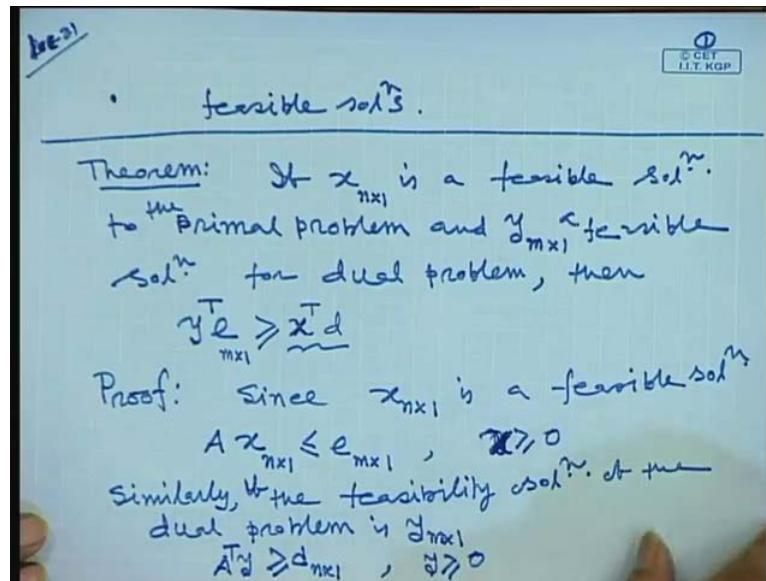 Lec-31
①
© CET
I.I.T. KGP
• feasible solⁿs.
Theorem: If x_{n×1} is a feasible solⁿ.
to the primal problem and y_{m×1} feasible
solⁿ. for dual problem, then
y^T e_{m×1} ≥ x^T d
Proof: Since x_{n×1} is a feasible solⁿ
A x_{n×1} ≤ e_{m×1} , x ≥ 0
Similarly, the feasibility solⁿ. of the
dual problem is y_{m×1}
A^T y ≥ d_{n×1} , y ≥ 0